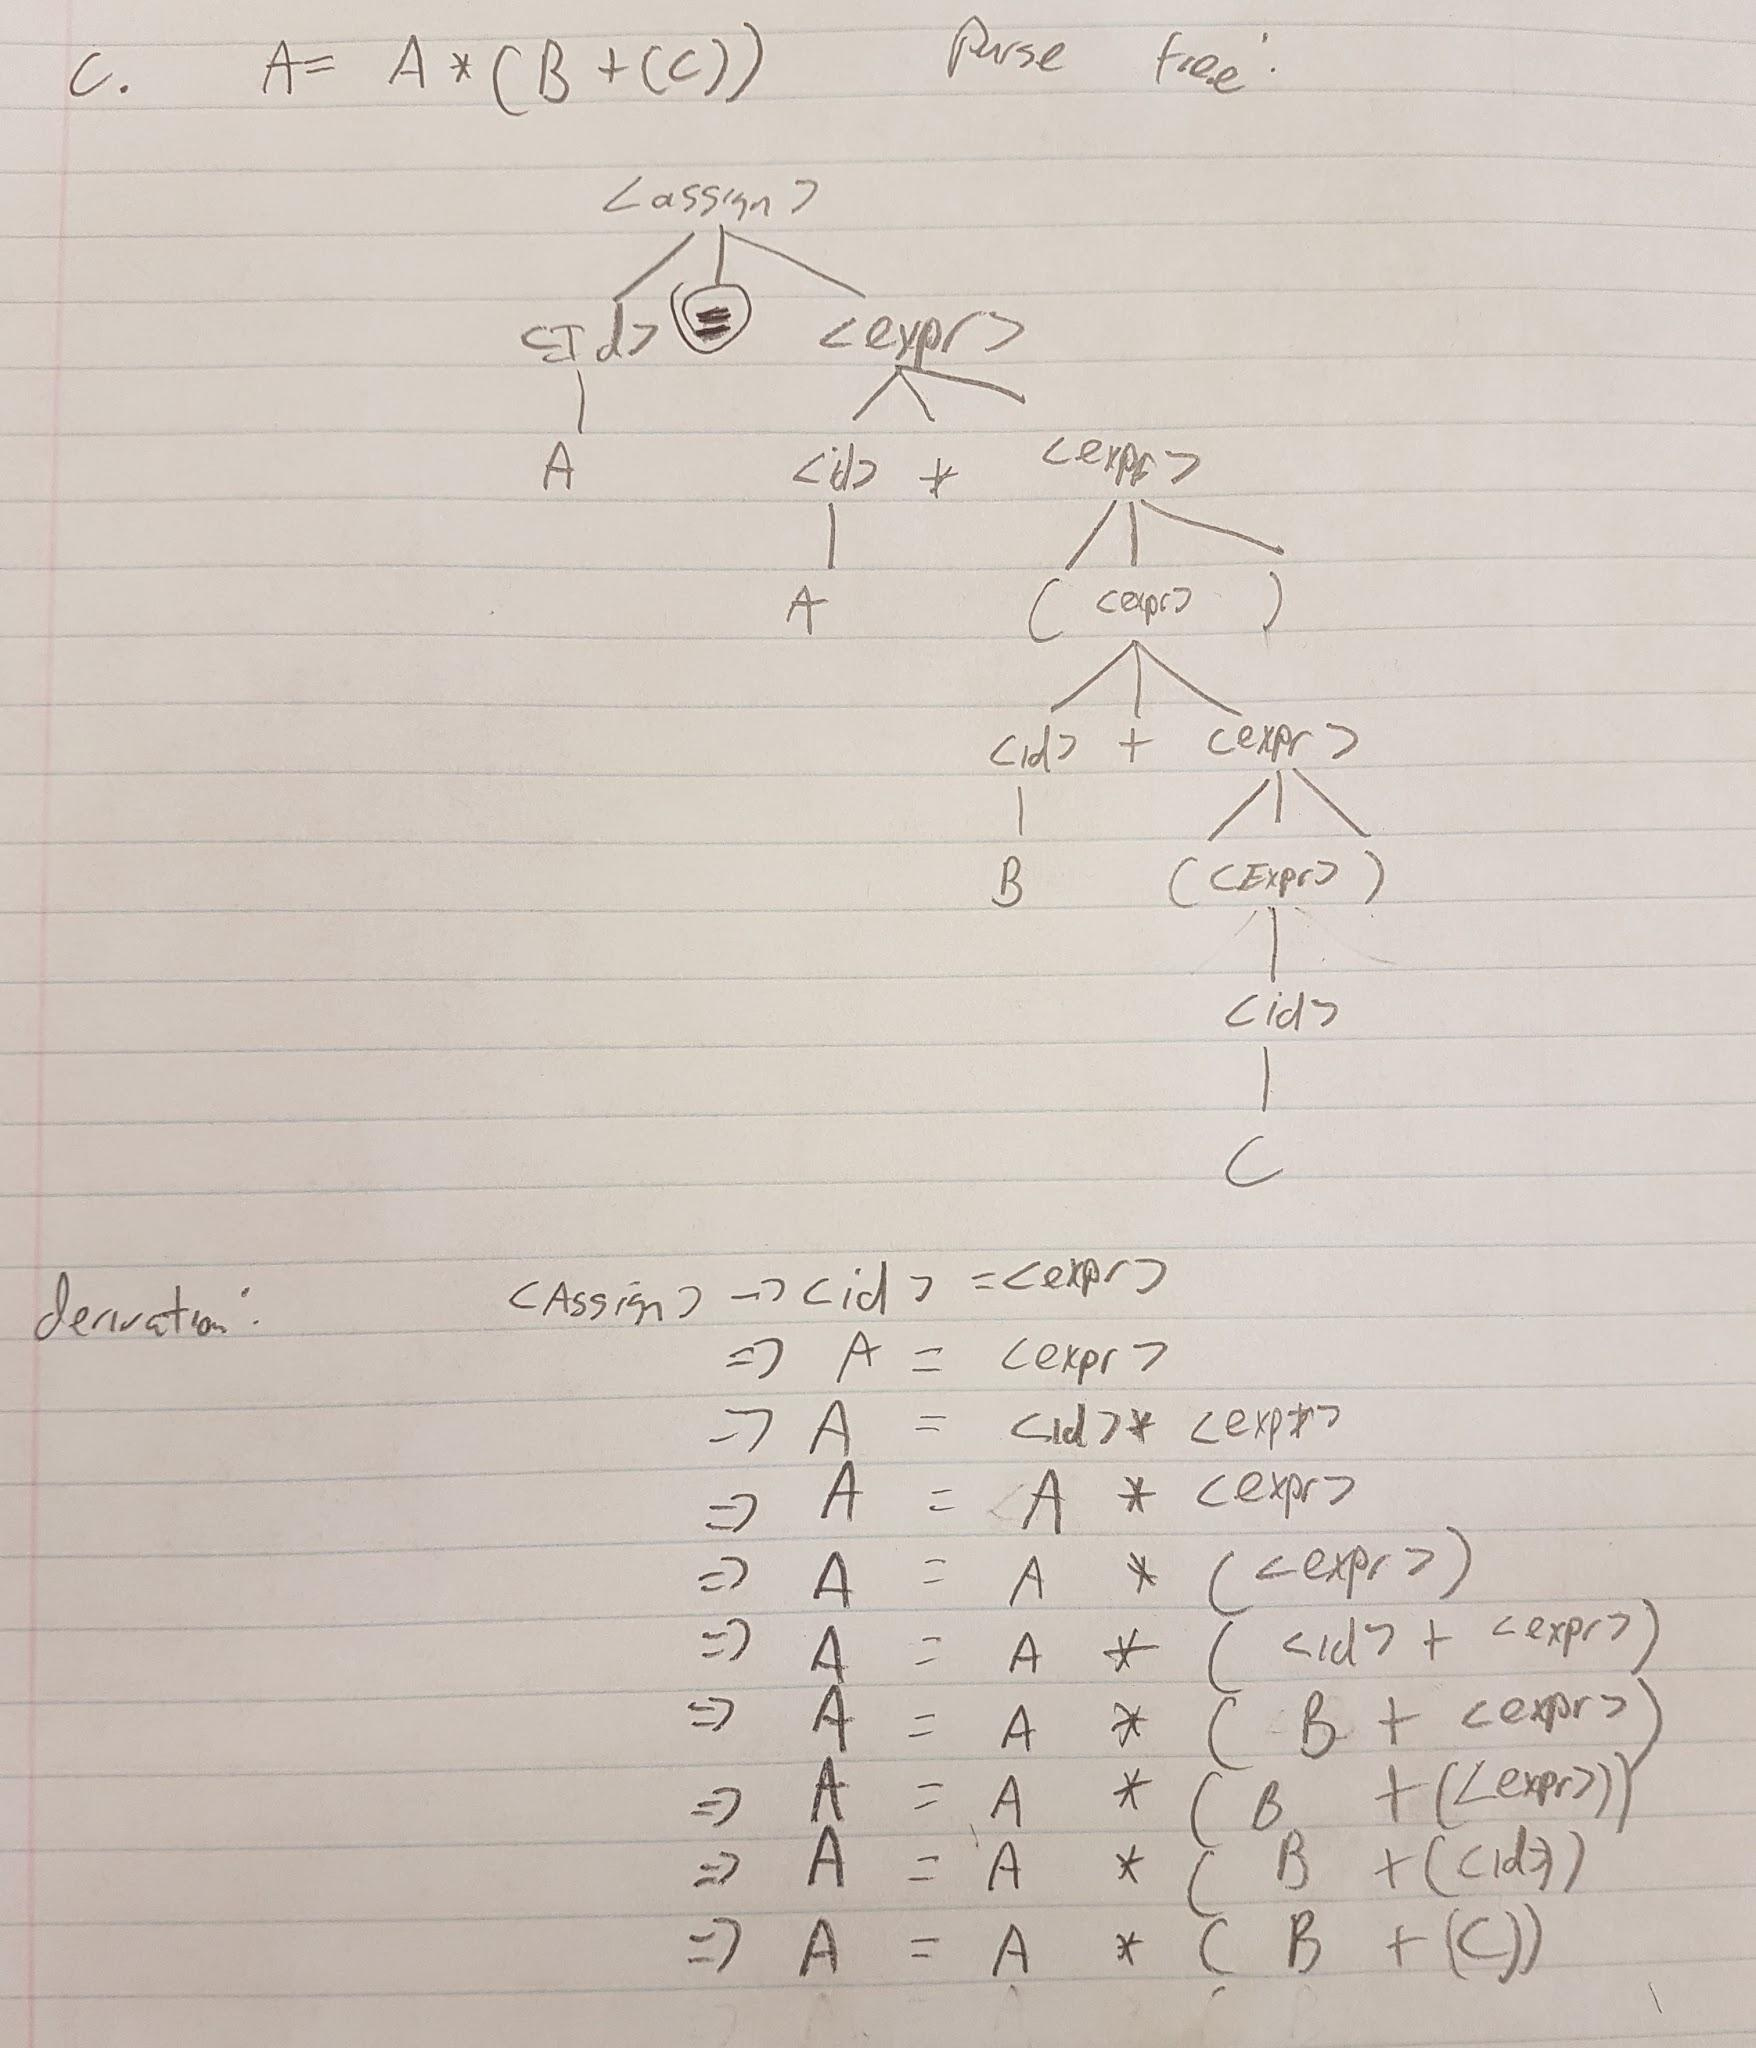 C. A= A*(B+(C)) Parse tree:
<assign>
<Id> = <expr>
A <id> * <expr>
A ( <expr> )
<id> + <expr>
B (<Expr>)
<id>
C
derivation: <Assign> -> <id> = <expr>
=> A = <expr>
=> A = <id> * <expr>
=> A = A * <expr>
=> A = A * (<expr>)
=> A = A * ( <id> + <expr>)
=> A = A * ( B + <expr>)
=> A = A * ( B + (<expr>))
=> A = A * ( B + (<id>))
=> A = A * ( B + (C))